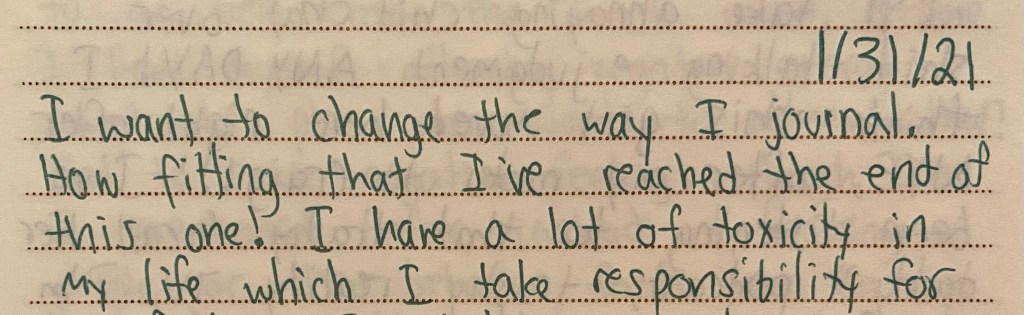 1/31/21
I want to change the way I journal.
How fitting that I've reached the end of
this one! I have a lot of toxicity in
my life which I take responsibility for